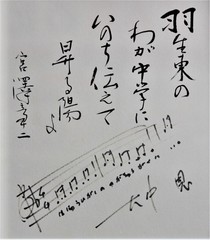 羽生東の
わが中学に
いのち伝えて
昇る陽よ
宮澤章二
大中恩